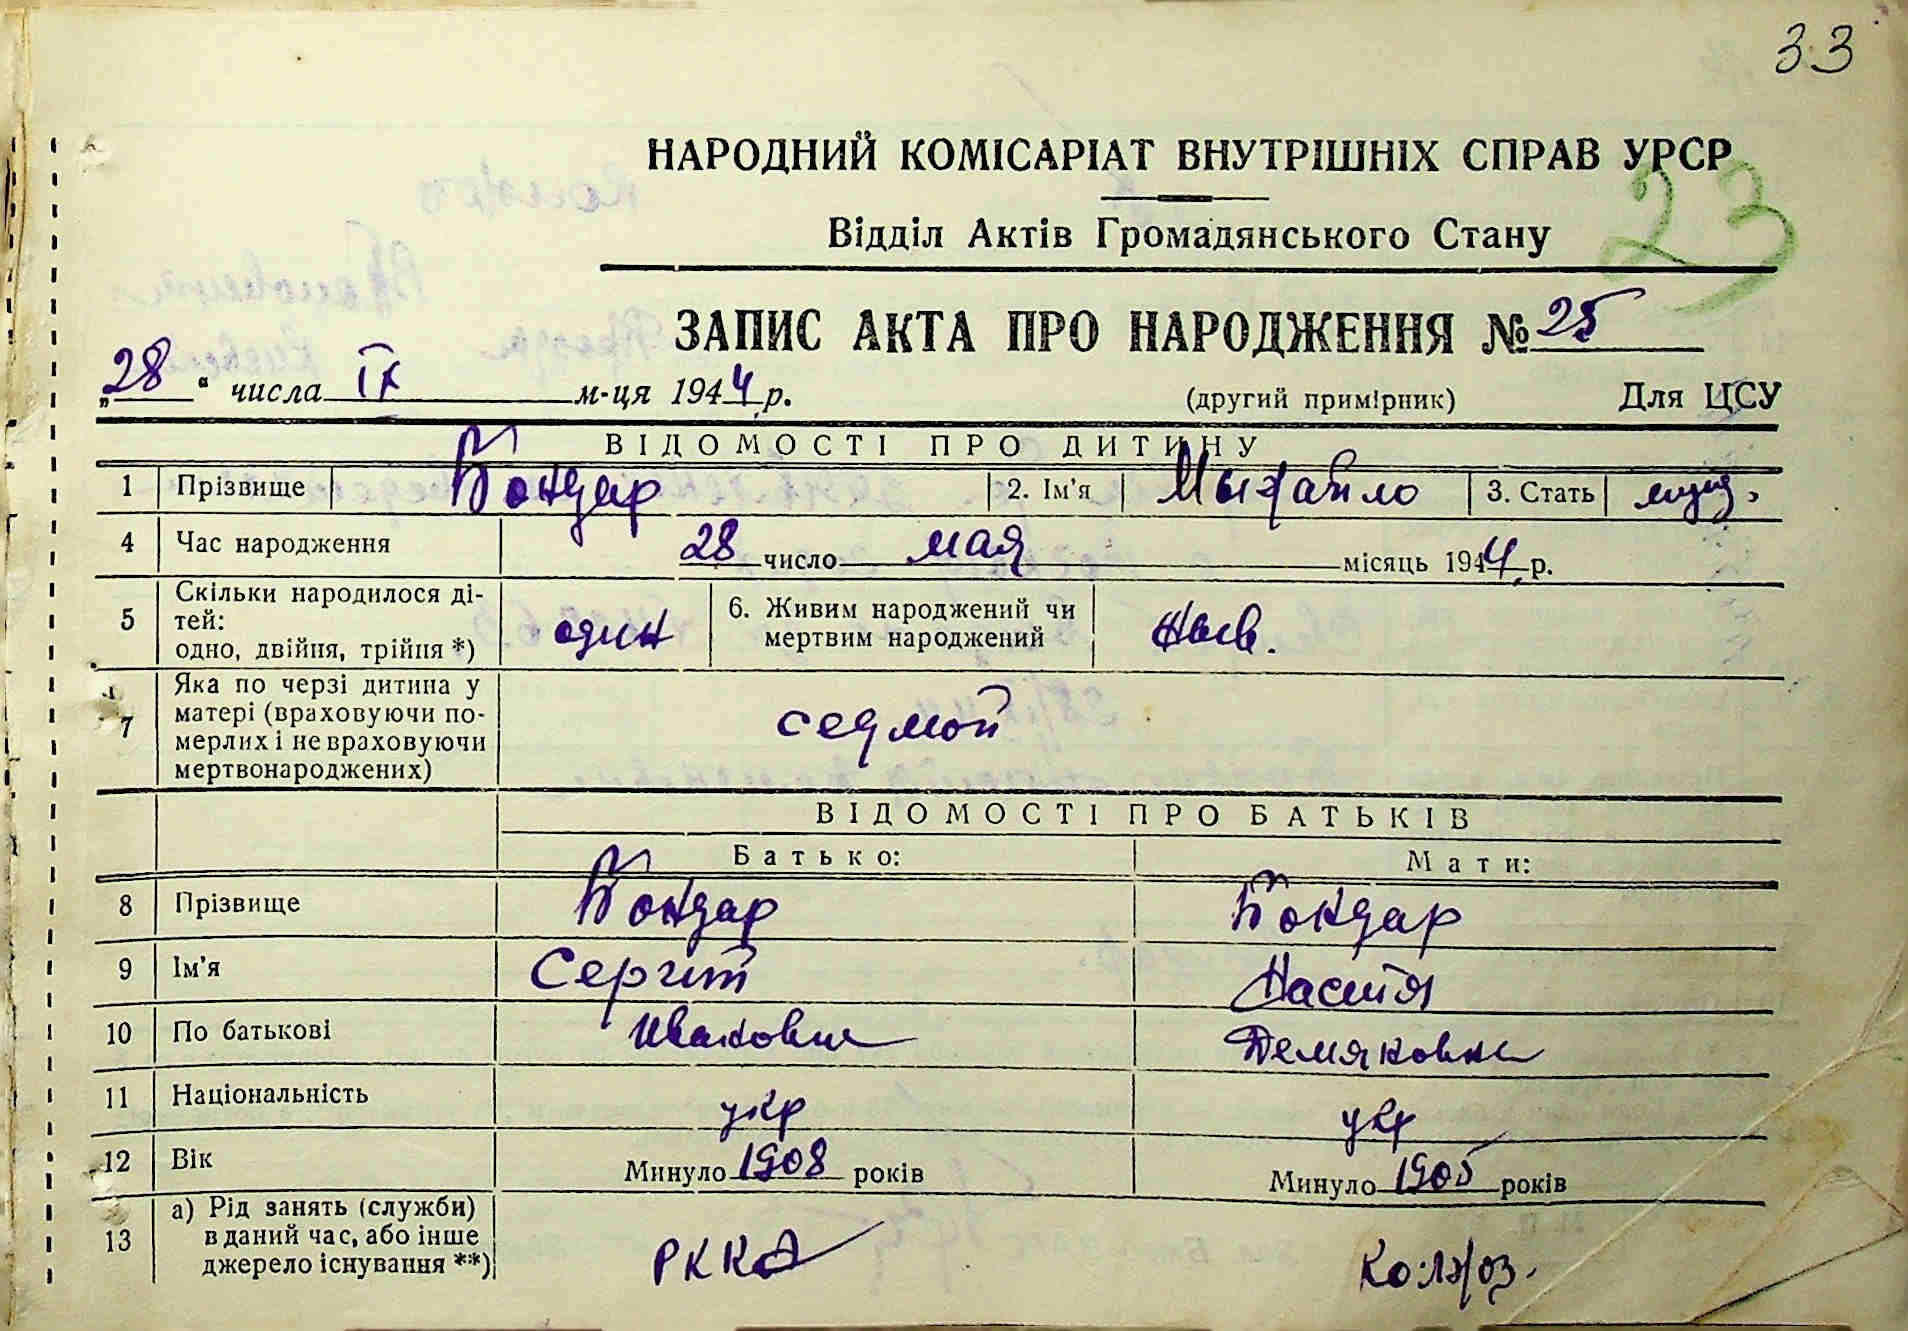 33
НАРОДНИЙ КОМІСАРІАТ ВНУТРІШНІХ СПРАВ УРСР
23
Відділ Актів Громадянського Стану
ЗАПИС АКТА ПРО НАРОДЖЕННЯ № 25
„28“ числа IX м-ця 1944 р. (другий примірник) Для ЦСУ
ВІДОМОСТІ ПРО ДИТИНУ
1 Прізвище Бондар 2. Ім'я Мыхайло 3. Стать муж.
4 Час народження 28 число мая місяць 1944 р.
5 Скільки народилося ді-
тей:
одно, двійня, трійня *) один
6. Живим народжений чи
мертвим народжений жыв.
7 Яка по черзі дитина у
матері (враховуючи по-
мерлих і не враховуючи
мертвонароджених) седмой
ВІДОМОСТІ ПРО БАТЬКІВ
Батько: Мати:
8 Прізвище Бондар Бондар
9 Ім'я Сергій Настя
10 По батькові Иванович Демяновна
11 Національність укр укр
12 Вік Минуло 1908 років Минуло 1905 років
13 а) Рід занять (служби)
в даний час, або інше
джерело існування **) РККА Колхоз.